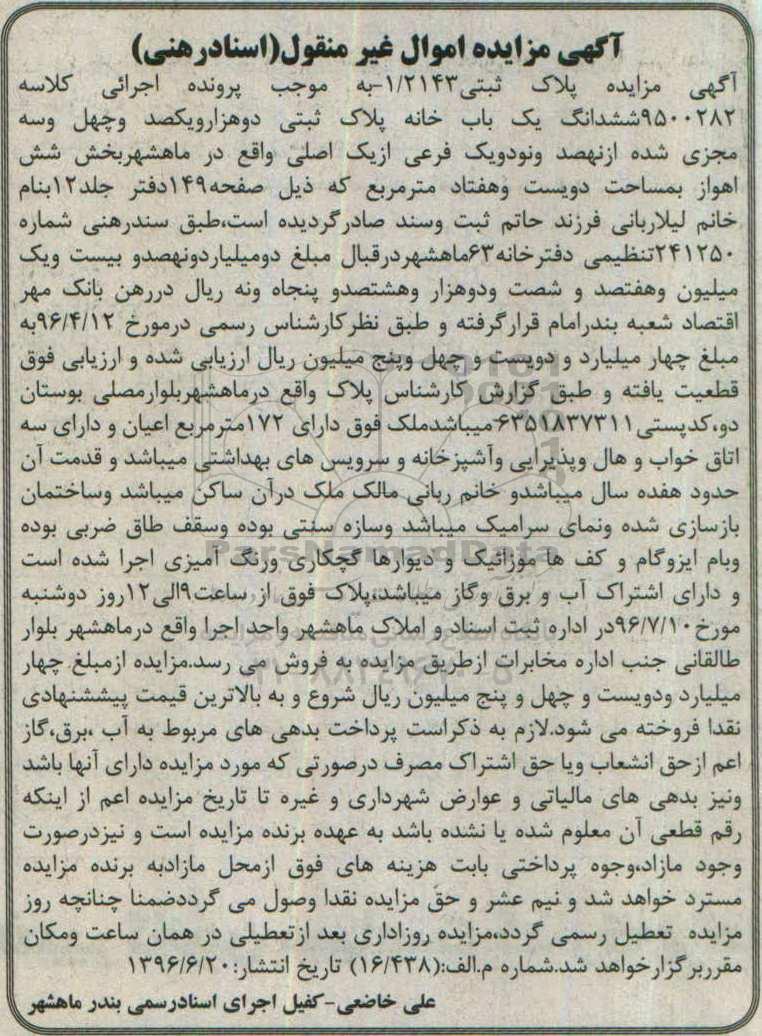 آگهی مزایده اموال غیر منقول(اسنادرهنی)
آگهی مزایده پلاک ثبتی۱/۲۱۴۳-به موجب پرونده اجرائی کلاسه
۹۵۰۰۲۸۲ششدانگ یک باب خانه پلاک ثبتی دوهزارویکصد وچهل وسه
مجزی شده ازنهصد ونودویک فرعی ازیک اصلی واقع در ماهشهربخش شش
اهواز بمساحت دویست وهفتاد مترمربع که ذیل صفحه۱۴۹دفتر جلد۱۲بنام
خانم لیلاربانی فرزند حاتم ثبت وسند صادرگردیده است،طبق سندرهنی شماره
۲۴۱۲۵۰تنظیمی دفترخانه۶۳ماهشهردرقبال مبلغ دومیلیاردونهصدو بیست ویک
میلیون وهفتصد و شصت ودوهزار وهشتصدو پنجاه ونه ریال دررهن بانک مهر
اقتصاد شعبه بندرامام قرارگرفته و طبق نظرکارشناس رسمی درمورخ ۹۶/۴/۱۲به
مبلغ چهار میلیارد و دویست و چهل وپنج میلیون ریال ارزیابی شده و ارزیابی فوق
قطعیت یافته و طبق گزارش کارشناس پلاک واقع درماهشهربلوارمصلی بوستان
دو،کدپستی۶۳۵۱۸۳۷۳۱۱-میباشدملک فوق دارای ۱۷۲مترمربع اعیان و دارای سه
اتاق خواب و هال وپذیرایی وآشپزخانه و سرویس های بهداشتی میباشد و قدمت آن
حدود هفده سال میباشدو خانم ربانی مالک ملک درآن ساکن میباشد وساختمان
بازسازی شده ونمای سرامیک میباشد وسازه سنتی بوده وسقف طاق ضربی بوده
وبام ایزوگام و کف ها موزائیک و دیوارها گچکاری ورنگ آمیزی اجرا شده است
و دارای اشتراک آب و برق وگاز میباشد،پلاک فوق از ساعت۹الی۱۲روز دوشنبه
مورخ۹۶/۷/۱۰در اداره ثبت اسناد و املاک ماهشهر واحد اجرا واقع درماهشهر بلوار
طالقانی جنب اداره مخابرات ازطریق مزایده به فروش می رسد.مزایده ازمبلغ چهار
میلیارد ودویست و چهل و پنج میلیون ریال شروع و به بالاترین قیمت پیششنهادی
نقدا فروخته می شود.لازم به ذکراست پرداخت بدهی های مربوط به آب ،برق،گاز
اعم ازحق انشعاب ویا حق اشتراک مصرف درصورتی که مورد مزایده دارای آنها باشد
ونیز بدهی های مالیاتی و عوارض شهرداری و غیره تا تاریخ مزایده اعم از اینکه
رقم قطعی آن معلوم شده یا نشده باشد به عهده برنده مزایده است و نیزدرصورت
وجود مازاد،وجوه پرداختی بابت هزینه های فوق ازمحل مازادبه برنده مزایده
مسترد خواهد شد و نیم عشر و حق مزایده نقدا وصول می گرددضمنا چنانچه روز
مزایده تعطیل رسمی گردد،مزایده روزاداری بعد ازتعطیلی در همان ساعت ومکان
مقرربرگزارخواهد شد.شماره م.الف:(۱۶/۴۳۸) تاریخ انتشار:۱۳۹۶/۶/۲۰
علی خاضعی-کفیل اجرای اسنادرسمی بندر ماهشهر
ParsNamadData